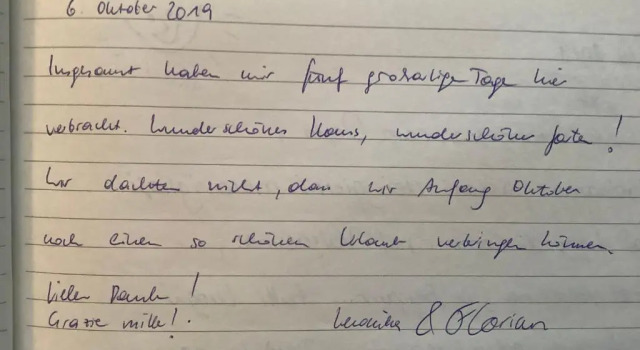 6. Oktober 2019
Insgesamt haben wir fünf großartige Tage hier
verbracht. Wunderschönes Haus, wunderschöner Garten!
Wir dachten nicht, dass wir Anfang Oktober
noch einen so schönen Urlaub verbringen können.
Vielen Dank!
Grazie mille!. Veronika & Florian